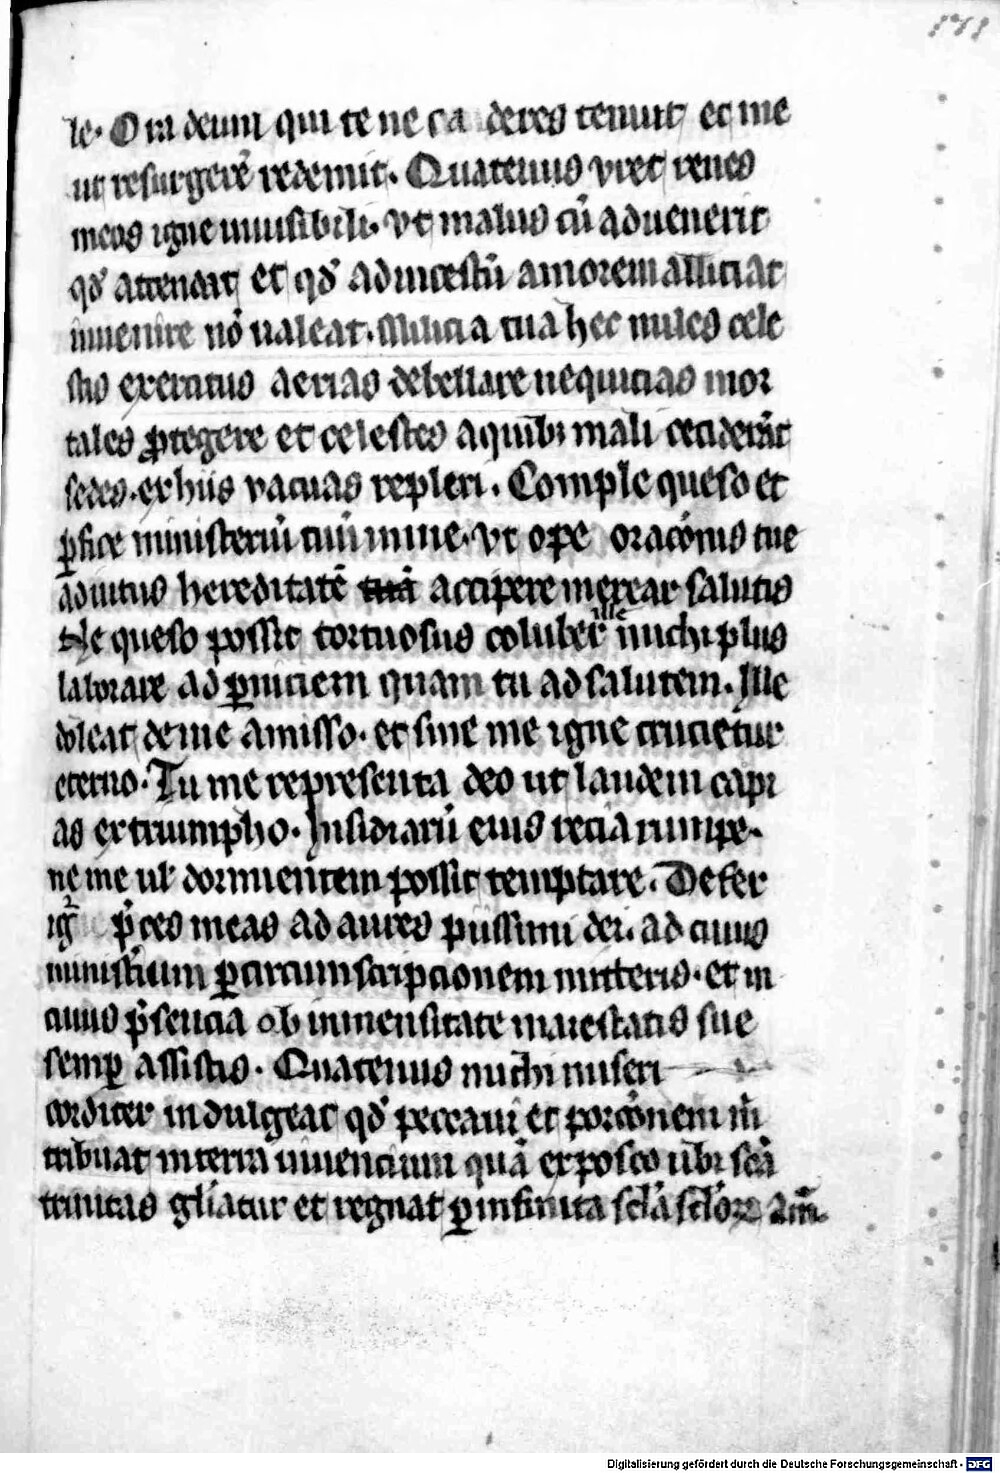 le. Ora deum qui te ne ca deres tenuit et me
ut resurgerē redemit. Quatenus vret renes
meos igne inuisibili. vt malus cū aduenerit
qđ attendat et qđ ad incestū amorem alliciat
inuenire nō ualeat. Milicia tua hec miles cele
stis exercitus aerias debellare nequicias mor
tales ꝓtegere et celestes a quibꝰ mali ceciderāt
sedes. ex hiis vacuas repleri. Comple queso et
ꝑfice ministeriū tuū in me. vt ope oracōnis tue
adiutus hereditatē tuā accipere merear salutis
Ne queso possit tortuosus coluber ille michi plus
laborare ad ꝑniciem quam tu ad salutem. Ille
doleat de me amisso. et sine me igne crucietur
eterno. Tu me representa deo ut laudem capi
as ex triumpho. Insidiarū eius recia rumpe.
ne me ul' dormientem possit temptare. Defer
igͬ p̄ces meas ad aures piissimi dei. ad cuius
minist'ium ꝑ circumscripcionem mitteris. et in
cuius p̄sencia ob inmensitate maiestatis sue
semꝑ assistis. Quatenus michi miseri
corditer indulgeat qđ peccaui et porcōnem m̄
tribuat in terra viuencium quā exposco ubi scā
trinitas gl'iatur et regnat ꝑ infinita scl'a scl'oꝝ Am̄.
Digitalisierung gefördert durch die Deutsche Forschungsgemeinschaft - DFG